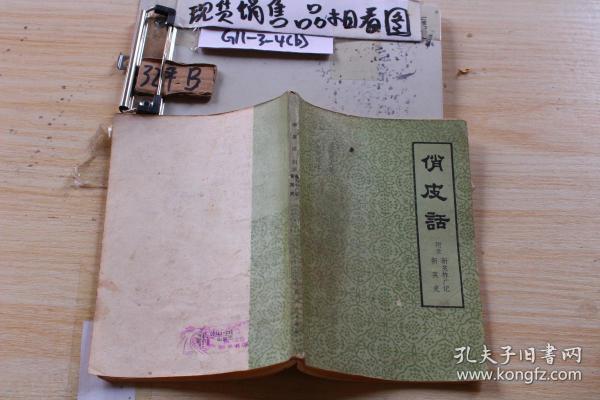 现货销售 品相看图
G11-3-4(b)
32开B
俏皮話
附录 新笑林广记
新笑史
孔夫子旧书网
www.kongfz.com